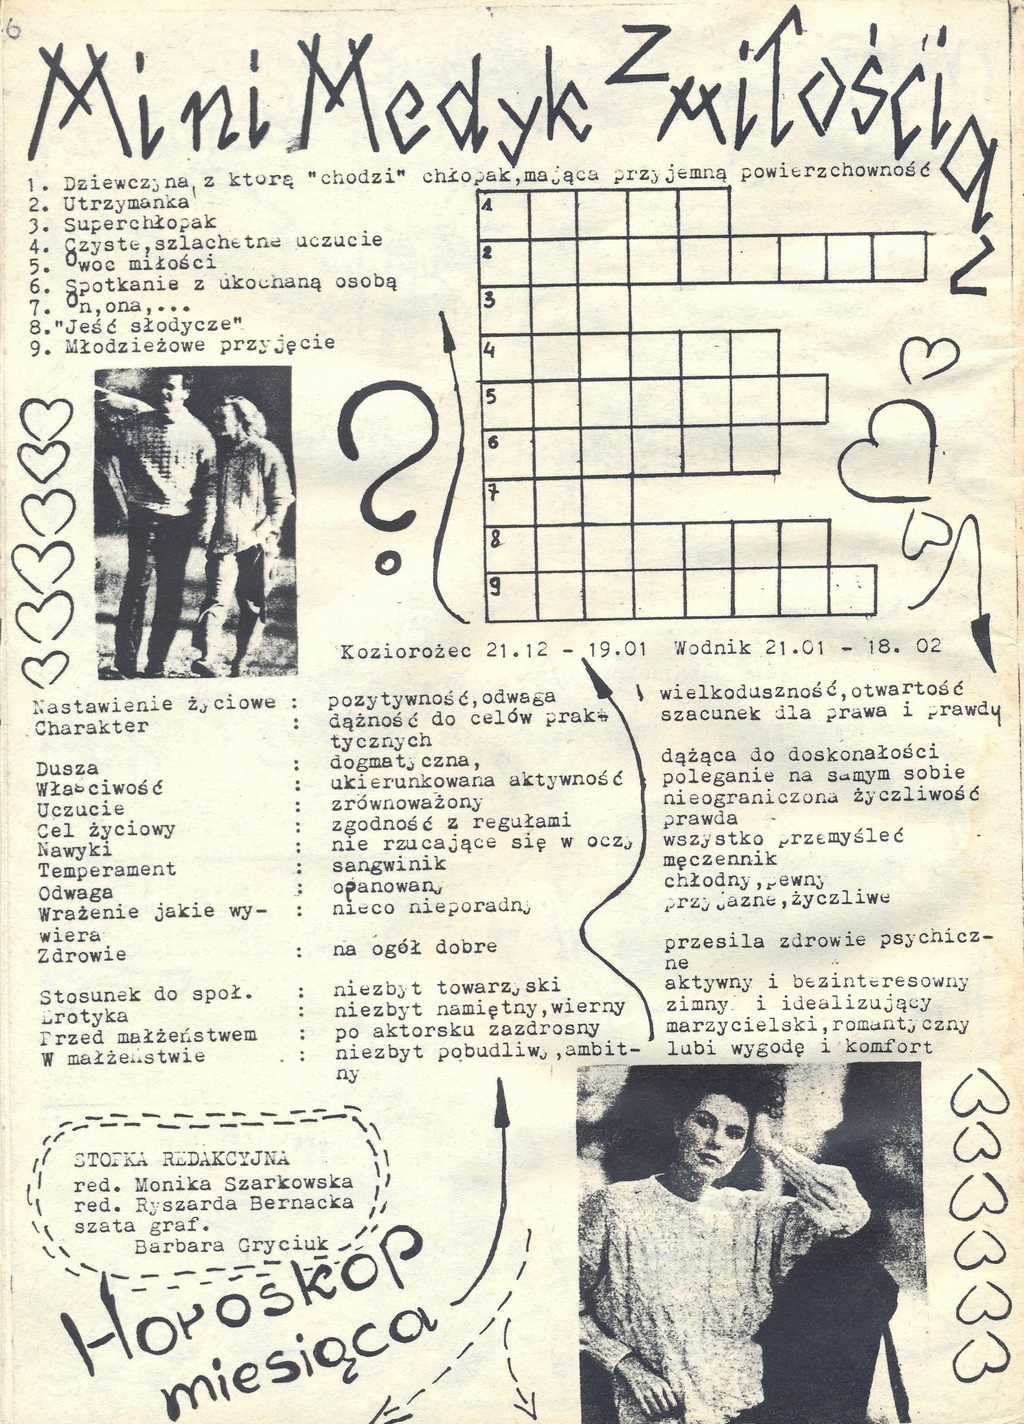 6
Mini Medyk z miłością
1. Dziewczyna, z którą "chodzi" chłopak,mająca przyjemną powierzchowność
2. Utrzymanka
3. Superchłopak
4. Czyste,szlachetne uczucie
5. Owoc miłości
6. Spotkanie z ukochaną osobą
7. On,ona,...
8."Jeść słodycze"
9. Młodzieżowe przyjęcie
1
2
3
4
5
6
7
8
9
?
Koziorożec 21.12 - 19.01 Wodnik 21.01 - 18. 02
Nastawienie życiowe : pozytywność,odwaga wielkoduszność,otwartość
Charakter : dążność do celów prak- szacunek dla prawa i prawdy
tycznych
Dusza : dogmatyczna, dążąca do doskonałości
Właściwość : ukierunkowana aktywność poleganie na samym sobie
Uczucie : zrównoważony nieograniczona życzliwość
Cel życiowy : zgodność z regułami prawda
Nawyki : nie rzucające się w oczy wszystko przemyśleć
Temperament : sangwinik męczennik
Odwaga : opanowany chłodny,pewny
Wrażenie jakie wy- : nieco nieporadny przyjazne,życzliwe
wiera
Zdrowie : na ogół dobre przesila zdrowie psychicz-
ne
Stosunek do społ. : niezbyt towarzyski aktywny i bezinteresowny
Erotyka : niezbyt namiętny,wierny zimny i idealizujący
Przed małżeństwem : po aktorsku zazdrosny marzycielski,romantyczny
W małżeństwie : niezbyt pobudliwy,ambit- lubi wygodę i komfort
ny
STOPKA REDAKCYJNA
red. Monika Szarkowska
red. Ryszarda Bernacka
szata graf.
Barbara Gryciuk
Horoskop
miesiąca